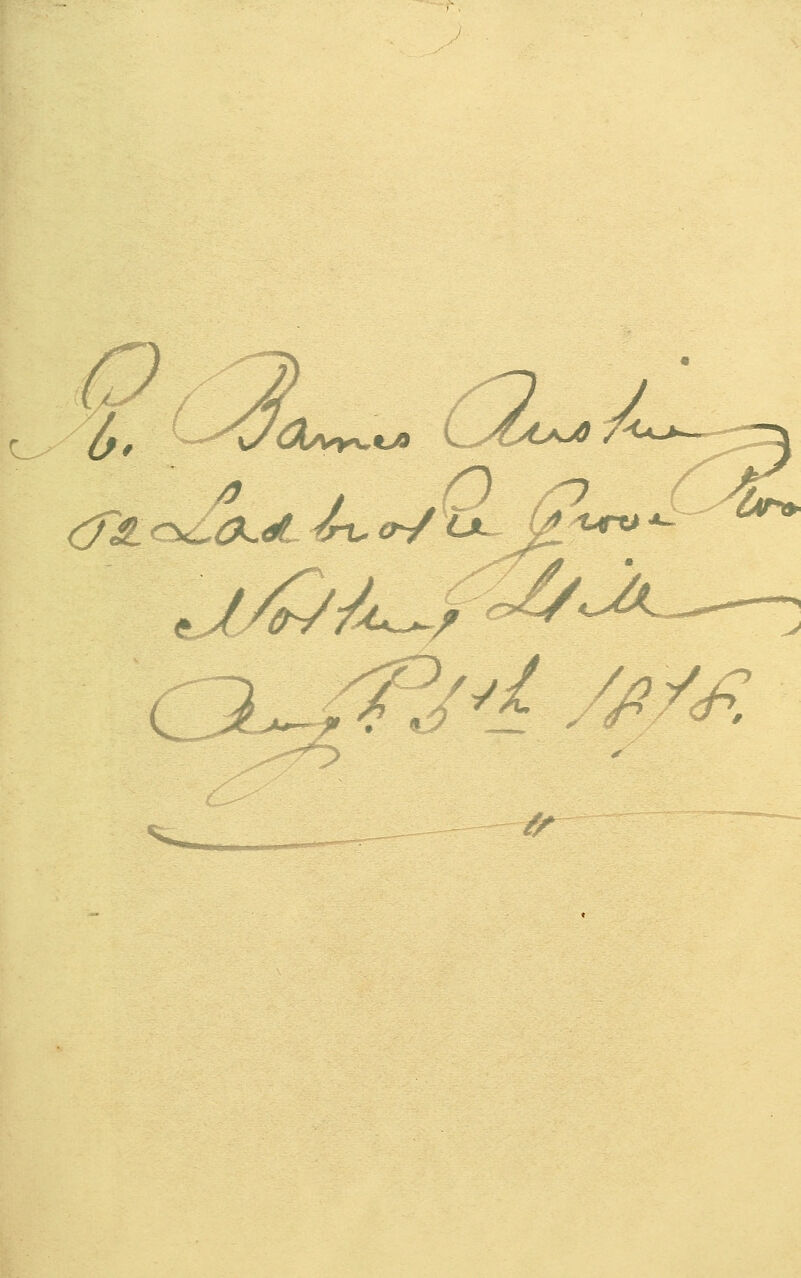 R. Barnes Austin
52 Ladbroke Grove Roa
Notting Hill
Augt. 5th 1878.